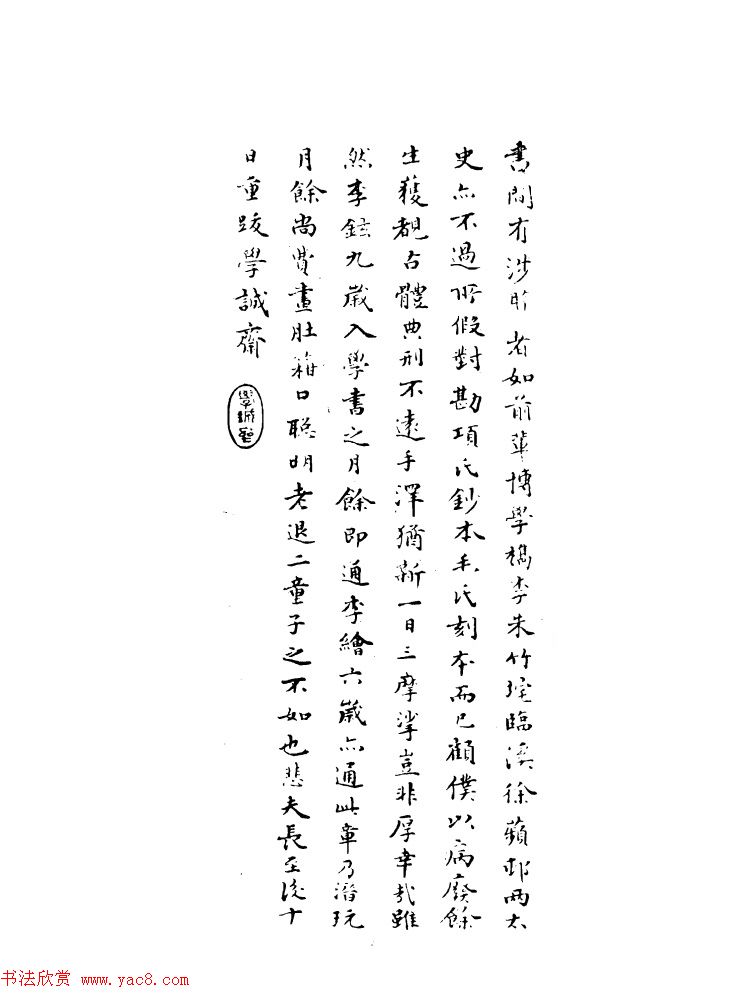 書間有涉於者如前輩博學檇李朱竹垞臨溪徐蘋邨兩太
史亦不過所假對勘項氏鈔本毛氏刻本而已顧僕以病廢餘
生獲覩古體典刑不遠手澤猶新一日三摩挲豈非厚幸哉雖
然李鉉九歲入學書之月餘即通李繪六歲亦通此章乃潛玩
月餘尚費畫肚箝口聰明老退二童子之不如也悲夫長至後十
日重跋學誠齋
學誠齋
书法欣赏 www.yac8.com